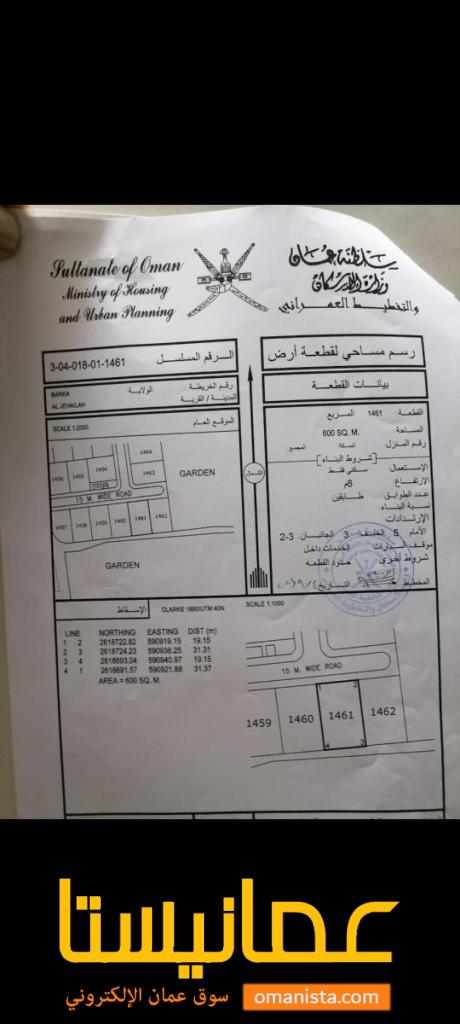 Sultanate of Oman
Ministry of Housing
and Urban Planning
سلطنة عمان
وزارة الإسكان
والتخطيط العمراني
3-04-018-01-1461
الرقم المسلسل
رسم مساحي لقطعة أرض
BARKA
AL JEHAILAH
الولاية
رقم الخريطة :
المدينة / القرية :
بيانات القطعة
SCALE 1:2000
الموقع العام
القطعة 1461 المربع
المساحة
600 SQ. M.
رقم المنزل السكة المجمع
شروط البناء
الإستعمال سكني فقط
الإرتفاع 8م
عدد الطوابق طابقين
نسبة البناء
الإرتدادات
الأمام 5 الخلف 3 الجانبان 2-3
موقف السيارات الخدمات داخل
شروط أخرى حدود القطعه
المخطط
التاريخ
الشمال
1464
1463
GARDEN
1456
1455
1454
15 M. WIDE ROAD
1457
1458
1459
1460
1461
1462
GARDEN
الإسقاط
CLARKE 1880/UTM 40N
SCALE 1:1000
LINE NORTHING EASTING DIST (m)
1 2 2618722.82 590919.15 19.15
2 3 2618724.23 590938.25 31.31
3 4 2618693.04 590940.97 19.15
4 1 2618691.57 590921.88 31.37
AREA = 600 SQ. M.
15 M. WIDE ROAD
1459
1460
1461
1462
1
2
3
4
عمانيستا
سوق عمان الإلكتروني
omanista.com